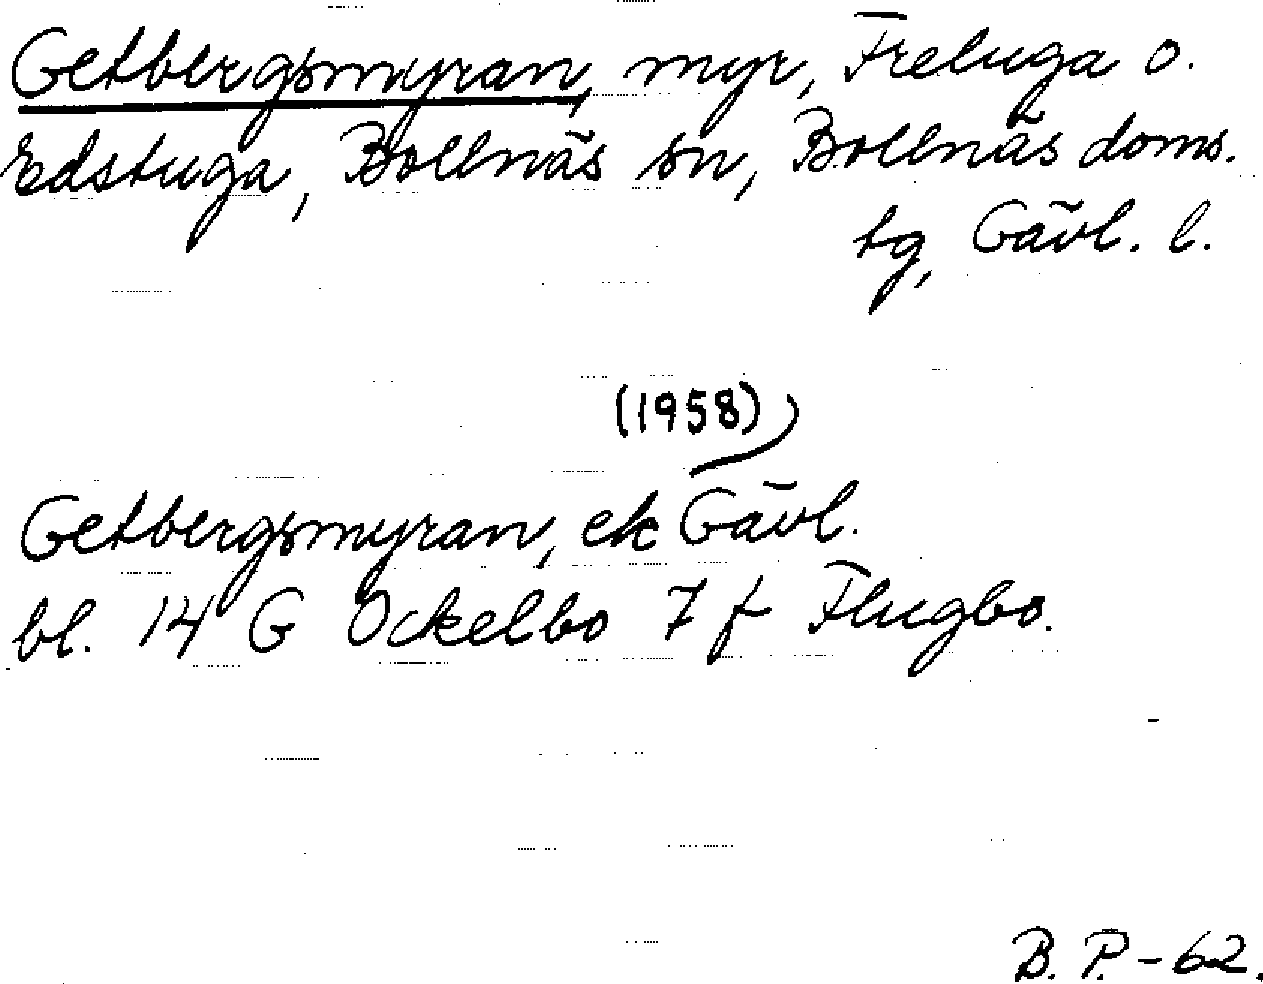 Getbergsmyran, myr, Freluga o.
Edstuga, Bollnäs sn, Bollnäs doms.
tg, Gävl. l.
(1958)
Getbergsmyran, ek Gävl.
bl. 14 G Ockelbo 7 f Flugbo.
B. P. - 62.